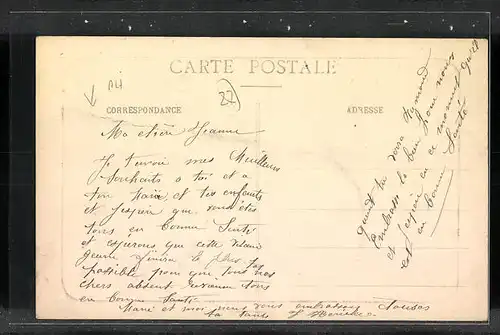 CARTE POSTALE
22
CORRESPONDANCE
ADRESSE
Ma chère Jeanne
Je t'envoi mes Meilleurs
Souhaits a toi et a
ton Marie et tes enfants
et j'espère que vous êtes
tous en bonne Santé
et espérons que cette
guerre finira le plus
possible pour que tous nos
chers absent revienne tous
en bonne Santé
Marie et moi nous vous embrassons
ta tante
quand tu verra
Embrasse le bien pour nous
et j'espère en ce moment qu'il
est en bonne Santé